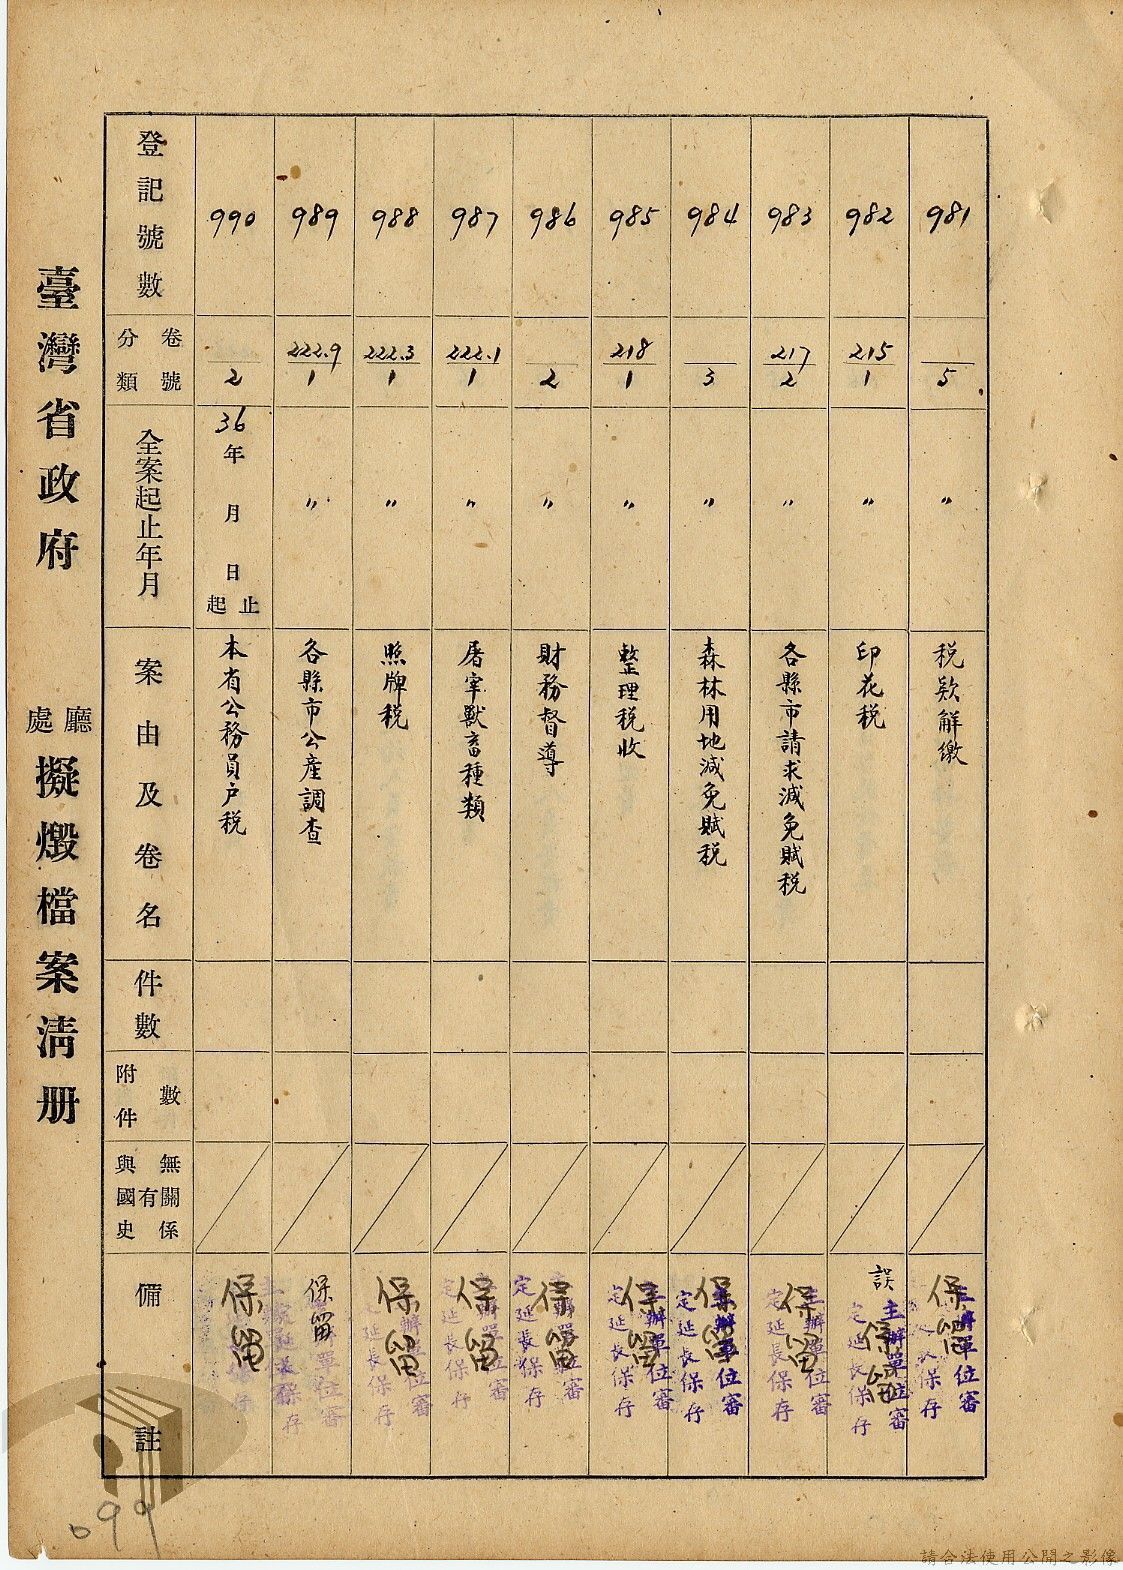 臺灣省政府 廳處 擬燬檔案清册
登記號數
卷號
分類
全案起止年月
案由及卷名
件數
附件數
與國史有無關係
備註
981
5
〃
税欵解繳
保留
主辦單位審定延長保存
982
215
1
〃
印花税
誤
保留
主辦單位審定延長保存
983
217
2
〃
各縣市請求減免賦税
保留
主辦單位審定延長保存
984
3
〃
森林用地減免賦税
保留
主辦單位審定延長保存
985
218
1
〃
整理税收
保留
主辦單位審定延長保存
986
2
〃
財務督導
保留
主辦單位審定延長保存
987
222.1
1
〃
屠宰獸畜種類
保留
主辦單位審定延長保存
988
222.3
1
〃
照牌税
保留
主辦單位審定延長保存
989
222.9
1
〃
各縣市公產調查
保留
主辦單位審定延長保存
990
2
36年 月 日起止
本省公務員户税
保留
099
請合法使用公開之影像